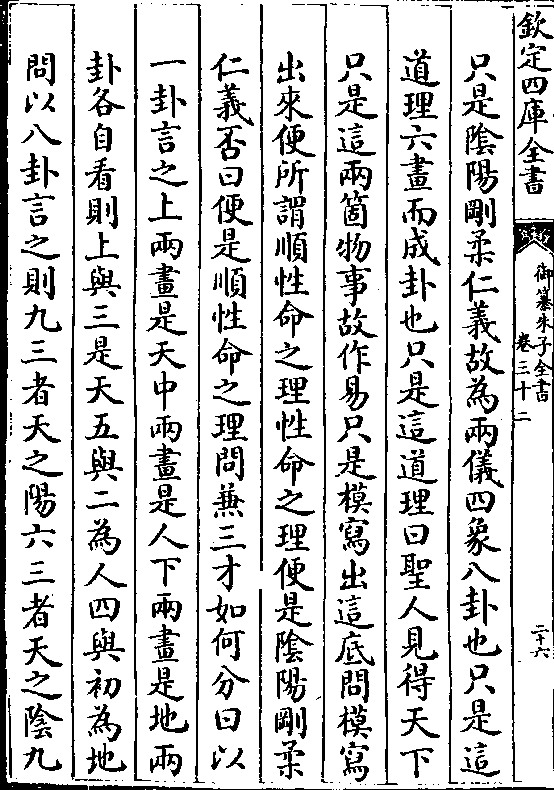 欽定四庫全書
御纂朱子全書
卷三十二
二十六
只是陰陽剛柔仁義故為兩儀四象八卦也只是這
道理六畫而成卦也只是這道理曰聖人見得天下
只是這兩箇物事故作易只是模寫出這底問模寫
出來便所謂順性命之理性命之理便是陰陽剛柔
仁義否曰便是順性命之理問兼三才如何分曰以
一卦言之上兩畫是天中兩畫是人下兩畫是地兩
卦各自看則上與三是天五與二為人四與初為地
問以八卦言之則九三者天之陽六三者天之陰九